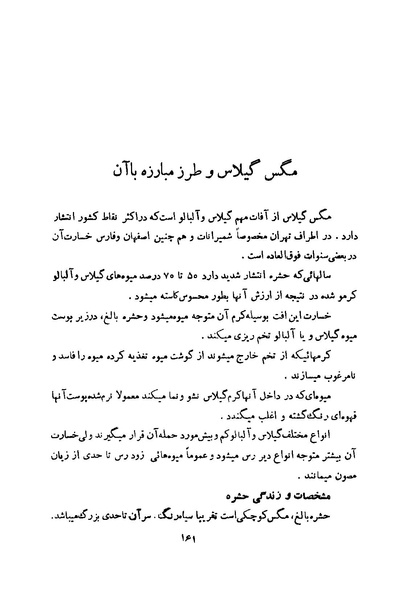 مگس گیلاس و طرز مبارزه با آن
مگس گیلاس از آفات مهم گیلاس و آلبالو است که در اکثر نقاط کشور انتشار
دارد . در اطراف تهران مخصوصاً شمیرانات و هم چنین اصفهان و فارس خسارت آن
در بعضی سنوات فوق العاده است .
سالهائی که حشره انتشار شدید دارد ۵۰ تا ۷۰ درصد میوه های گیلاس و آلبالو
کرمو شده در نتیجه از ارزش آنها بطور محسوس کاسته میشود .
خسارت این افت بوسیله کرم آن متوجه میوه میشود وحشره بالغ، درزیر پوست
میوه گیلاس و یا آلبالو تخم ریزی میکند .
کرمهائیکه از تخم خارج میشوند از گوشت میوه تغذیه کرده میوه را فاسد و
نامرغوب میسازند .
میوه ای که در داخل آنها کرم گیلاس نشو ونما میکند معمولا نرم شده پوست آنها
قهوه ای رنگ گشته و اغلب میگندد .
انواع مختلف گیلاس و آلبالو کم و بیش مورد حمله آن قرار میگیرند ولی خسارت
آن بیشتر متوجه انواع دیر رس میشود و عموماً میوه هائی زود رس تا حدی از زیان
مصون میمانند .
مشخصات و زندگی حشره
حشره بالغ، مگس کوچکی است تقریبا سیاه رنگ . سر آن تاحدی بزرگ میباشد.
۱۶۱